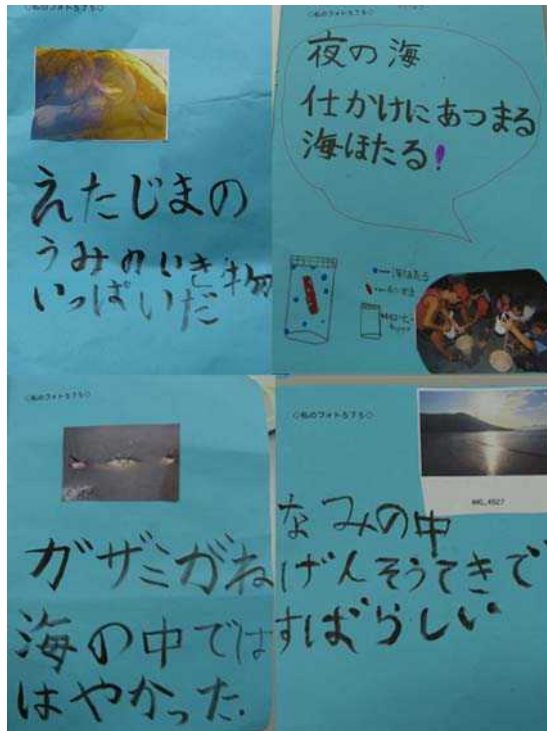 えたじまの
うみのいき物
いっぱいだ
◇私のフォト575◇
夜の海
仕かけにあつまる
海ほたる!
海ほたる
◇私のフォト575◇
ガザミがね
海の中では
はやかった.
◇私のフォト575◇
IMG_4527
なみの中
げんそうてきで
すばらしい